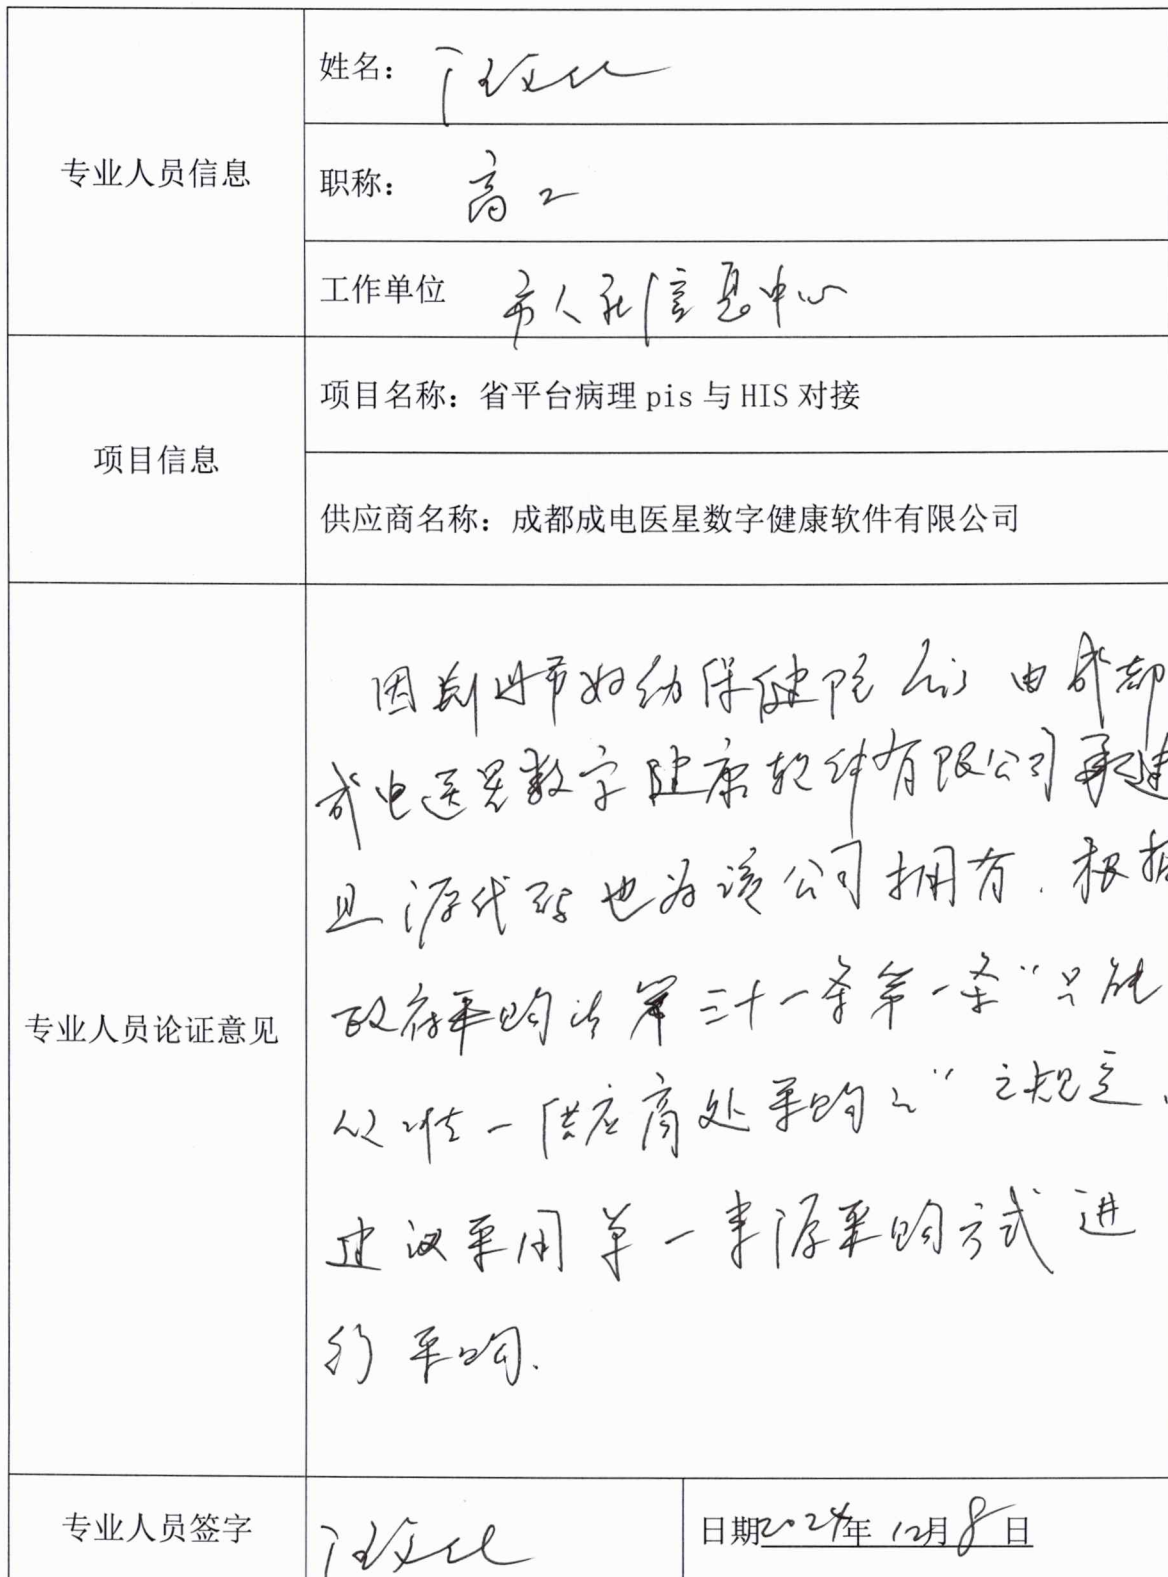 专业人员信息
姓名：
职称： 高工
工作单位 市人社信息中心
项目信息
项目名称：省平台病理 pis 与 HIS 对接
供应商名称：成都成电医星数字健康软件有限公司
专业人员论证意见
因 市妇幼保健院 his 由成都
成电医星数字健康软件有限公司承建
且源代码也为该公司拥有. 根据
政府采购法第三十一条第一条“只能
从唯一供应商处采购的”之规定、
建议采用单一来源采购方式进
行采购.
专业人员签字
日期2024年 12月 8 日